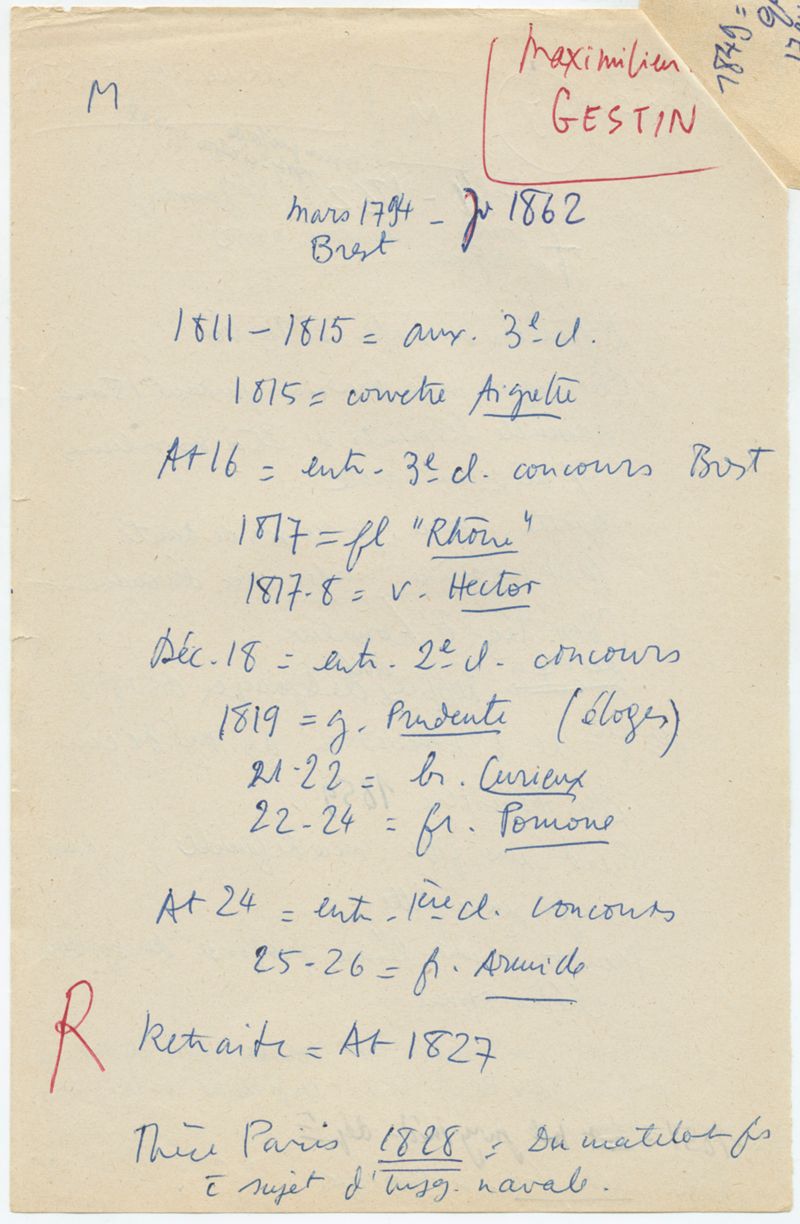 1849 =
Maximilien
GESTIN
M
mars 1794 - Jr 1862
Brest
1811 - 1815 = aux. 3e cl.
1815 = corvette Aigrette
At 16 = entr. 3e cl. concours Brest
1817 = fl "Rhône"
1817-8 = v. Hector
Déc. 18 = entr. 2e cl. concours
1819 = g. Prudente (éloges)
21-22 = br. Curieux
22-24 = fr. Pomone
At 24 = entr. 1ère cl. concours
25-26 = fr. Armide
R
Retraite = At 1827
Thèse Paris 1828 = Du matelot frs
c sujet d'hyg. navale.